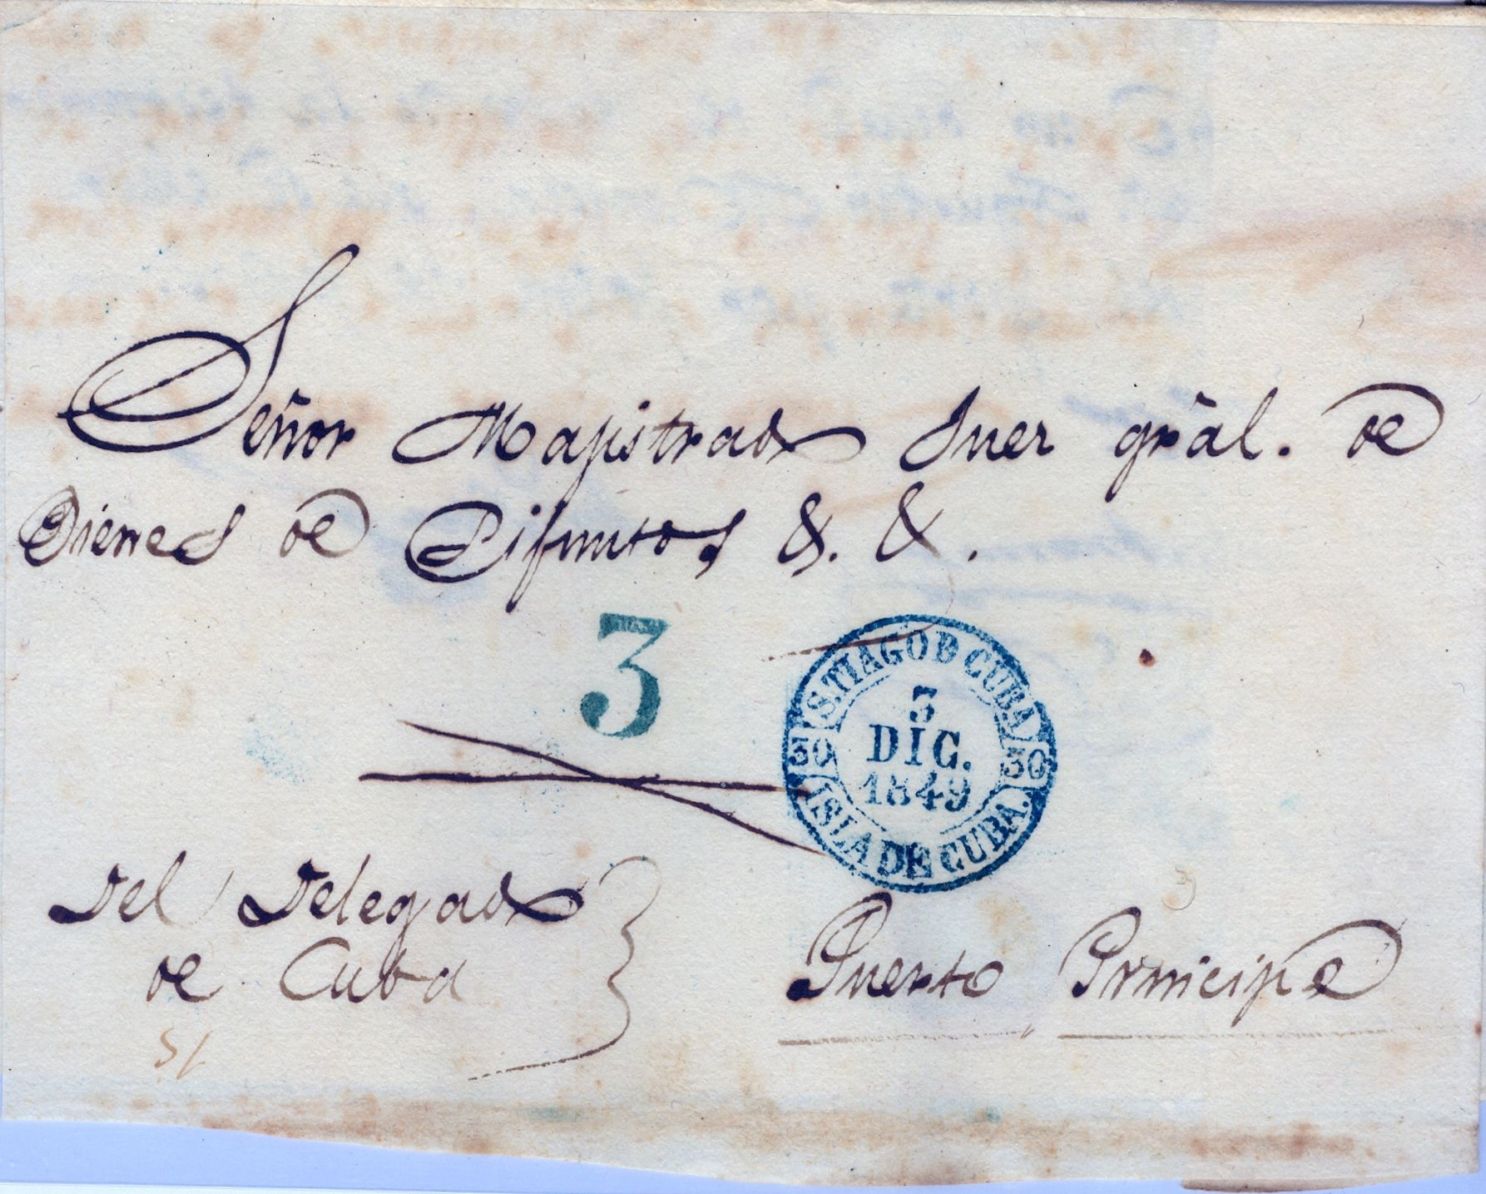 Señor Majistrado Juez grãl. de
Bienes de Difuntos &. &.
3
S.TIAGO D CUBA
3
DIC.
1849
30 30
ISLA DE CUBA.
Del Delegado
de Cuba
Puerto Principe
51